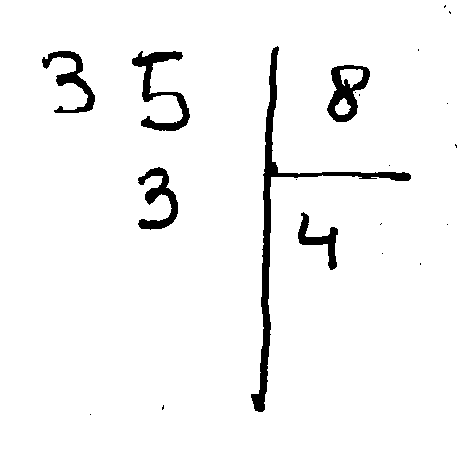 35 8
3 4